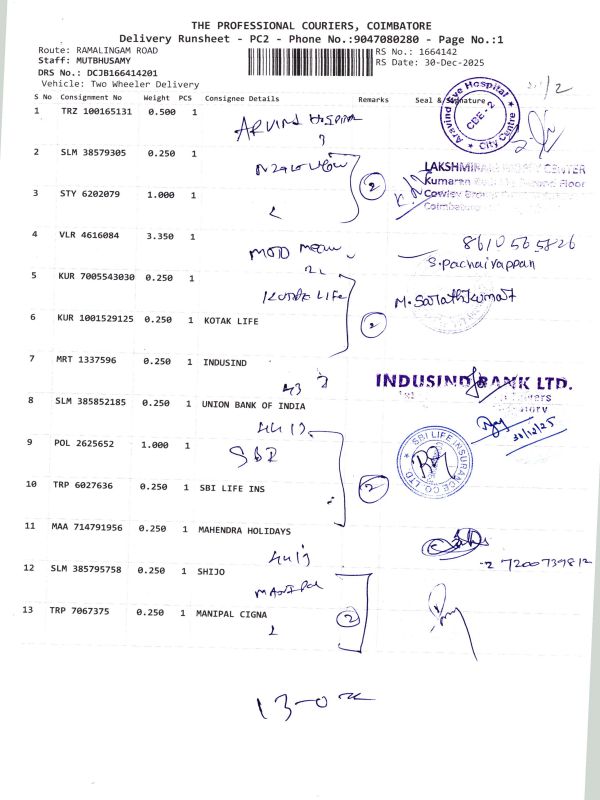 THE PROFESSIONAL COURIERS, COIMBATORE
Delivery Runsheet - PC2 - Phone No.:9047080280 - Page No.:1
Route: RAMALINGAM ROAD RS No.: 1664142
Staff: MUTBHUSAMY RS Date: 30-Dec-2025
DRS No.: DCJB166414201
Vehicle: Two Wheeler Delivery
S No Consignment No Weight PCS Consignee Details Remarks Seal & Signature
1 TRZ 100165131 0.500 1
ARVIND HOSPITAL
Aravind Eye Hospital CBE-2 City Centre
2 SLM 38579305 0.250 1
2
LAKSHMI
Kumaran
3 STY 6202079 1.000 1
Cowley
Coimbatore
4 VLR 4616084 3.350 1
8610565826
S.pachaiyappan
5 KUR 7005543030 0.250 1
KOTAK LIFE
M. Sarathkumar
6 KUR 1001529125 0.250 1 KOTAK LIFE
2
7 MRT 1337596 0.250 1 INDUSIND
INDUSIND BANK LTD.
8 SLM 385852185 0.250 1 UNION BANK OF INDIA
30/12/25
9 POL 2625652 1.000 1
SBI
SBI LIFE INSURANCE CO LTD
10 TRP 6027636 0.250 1 SBI LIFE INS
2
11 MAA 714791956 0.250 1 MAHENDRA HOLIDAYS
7200739812
12 SLM 385795758 0.250 1 SHIJO
MANIPAL
13 TRP 7067375 0.250 1 MANIPAL CIGNA
2